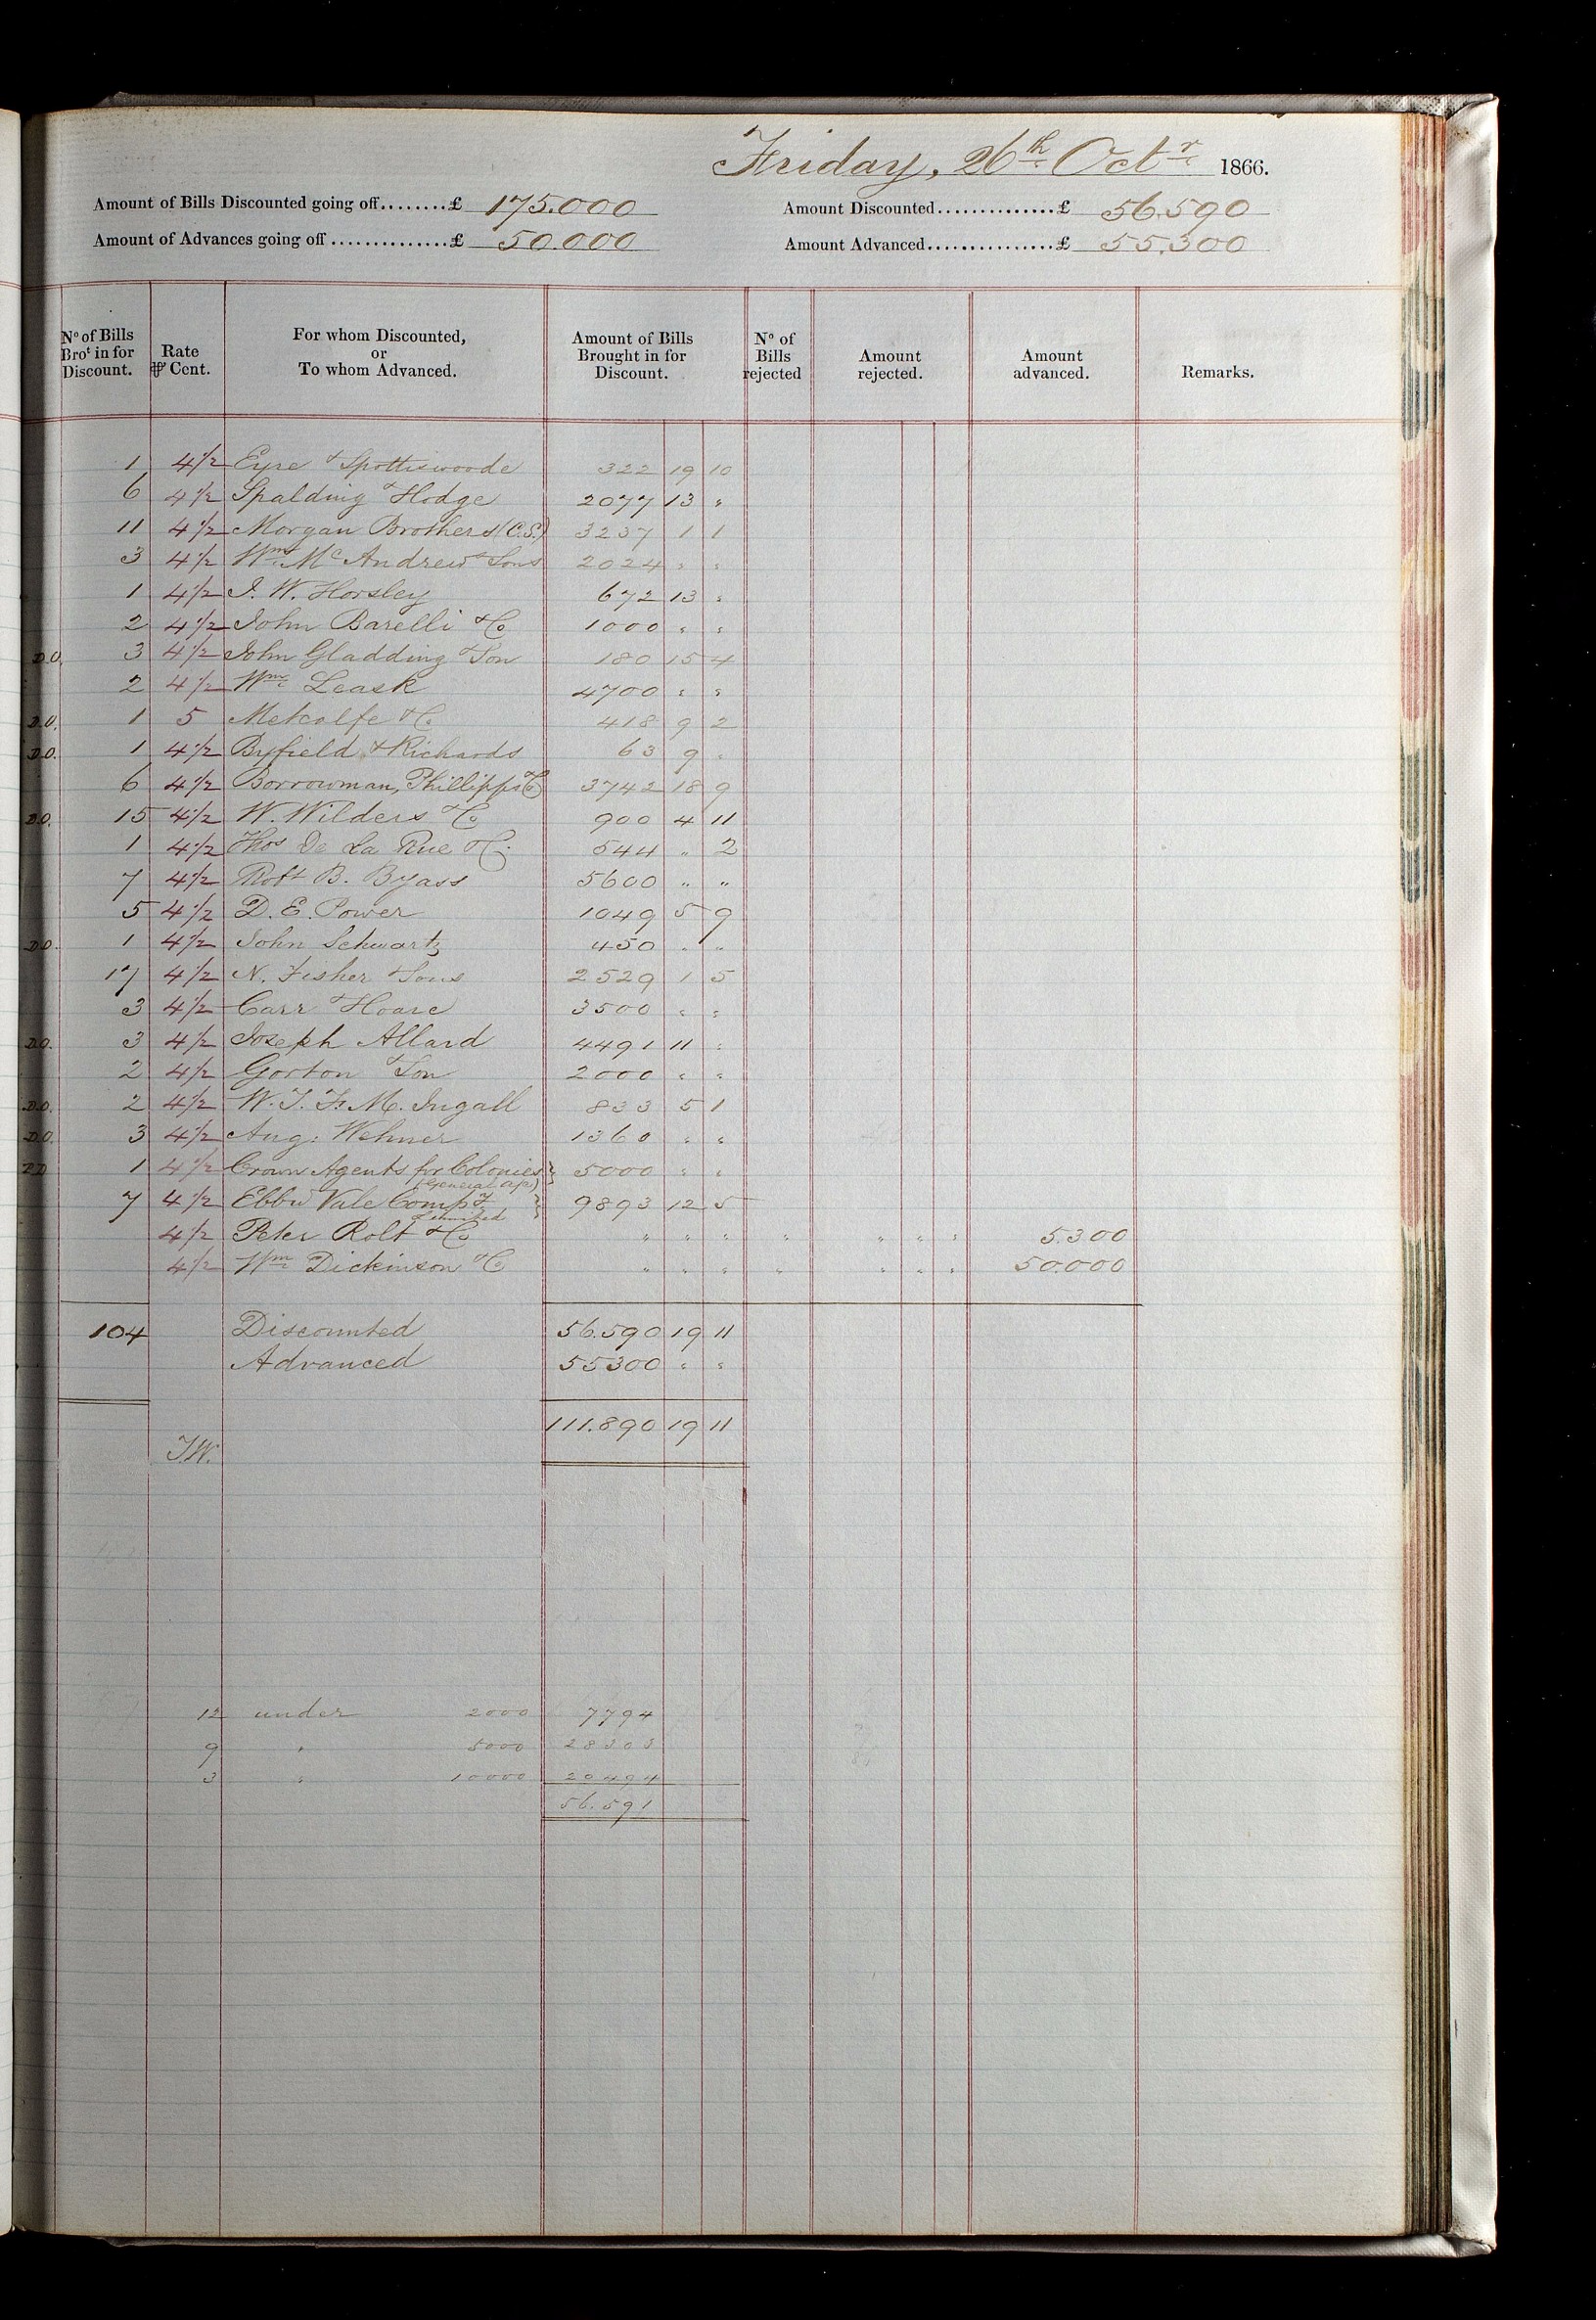 Friday, 26th Octr 1866.
Amount of Bills Discounted going off........£ 175.000 Amount Discounted..............£ 56.590
Amount of Advances going off..............£ 50.000 Amount Advanced...............£ 55.300
No of Bills Brot in for Discount. Rate ⅌ Cent. For whom Discounted, or To whom Advanced. Amount of Bills Brought in for Discount. No of Bills rejected Amount rejected. Amount advanced. Remarks.
1 4½ Eyre & Spottiswoode 322 19 10
6 4½ Spalding & Hodge 2077 13 "
11 4½ Morgan Brothers (C.S.) 3237 1 1
3 4½ Wm McAndrew & Sons 2024 " "
1 4½ J. W. Horsley 672 13 "
2 4½ John Barelli & Co 1000 " "
D.O. 3 4½ John Gladding & Son 180 15 4
2 4½ Wm Leask 4700 " "
D.O. 1 5 Metcalfe & Co 418 9 2
D.O. 1 4½ Byfield & Richards 63 9 "
6 4½ Borrowman, Phillipps & Co 3742 18 9
D.O. 15 4½ W. Wilders & Co 900 4 11
1 4½ Thos De La Rue & Co 544 " 2
7 4½ Robt B. Byass 5600 " "
5 4½ D. E. Power 1049 5 9
D.O. 1 4½ John Schwartz 450 " "
17 4½ N. Fisher & Sons 2529 1 5
3 4½ Carr & Hoare 3500 " "
D.O. 3 4½ Joseph Allard 4491 11 "
2 4½ Gorton & Son 2000 " "
D.O. 2 4½ W. T. F. M. Ingall 833 5 1
D.O. 3 4½ Aug: Wehner 1360 " "
P.D 1 4½ Crown Agents for Colonies 5000 " "
(General a/c)
7 4½ Ebbw Vale Compy 9893 12 5
Limited
4½ Peter Rolt & Co " " " " " " " 5.300
4½ Wm Dickinson & Co " " " " " " " 50.000
104 Discounted 56.590 19 11
Advanced 55300 " "
111.890 19 11
J.W.
12 under 2000 7794
9 " 5000 28303
3 " 10000 20494
56.591